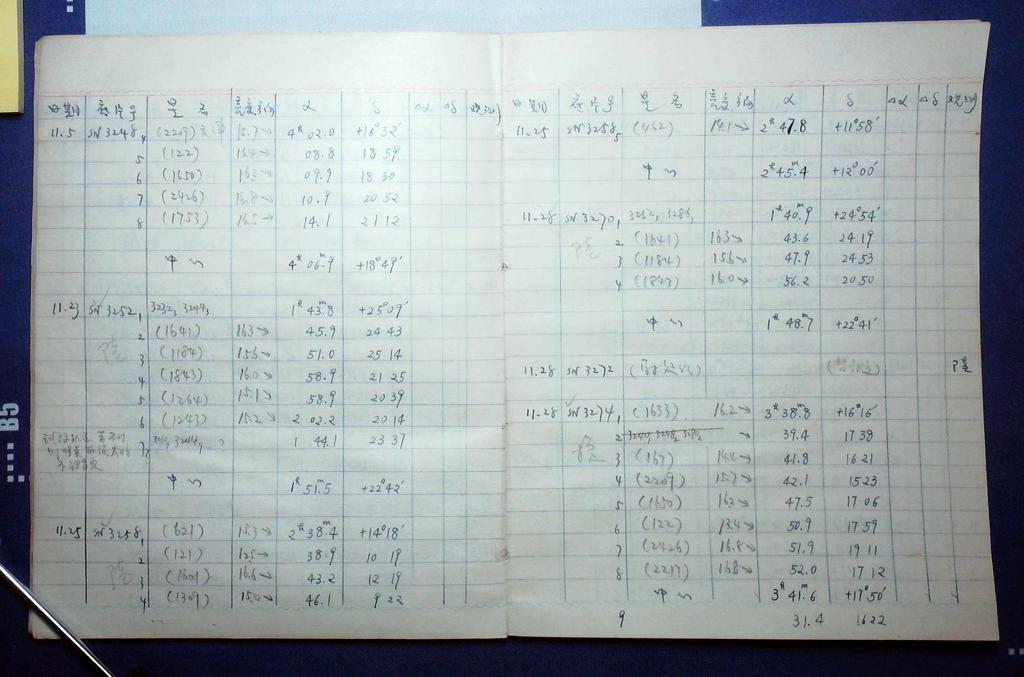 日期 底片号 星名 亮度 α δ Δα Δδ
11.5 SN3248, 4 (2209) 15.7→ 4ʰ 02.0 +16°32′
5 (122) 13.4→ 08.8 18 59
6 (1650) 16.3→ 09.9 18 30
7 (2426) 16.8→ 10.9 20 52
8 (1753) 16.5→ 14.1 21 12
中心 4ʰ 06.9 +18°49′
11.23 SN3252, 3232, 3244, 1ʰ 43ᵐ.8 +25°09′
2 (1641) 16.3→ 45.9 24 43
陆 3 (1184) 15.6→ 51.0 25 14
4 (1843) 16.0→ 58.9 21 25
5 (1264) 15.1→ 58.9 20 39
6 (1243) 15.2→ 2 02.2 20 14
7, 3244, ? 1 44.1 23 37
中心 1ʰ 51ᵐ.5 +22°42′
11.25 SN3258, 1 (621) 15.3→ 2ʰ 38ᵐ.4 +14°18′
2 (121) 12.5→ 38.9 10 19
陆 3 (1601) 16.6→ 43.2 12 19
4 (1309) 15.0→ 46.1 9 22
B5
日期 底片号 星名 亮度 α δ Δα Δδ
11.25 SN3258, 5 (462) 14.1→ 2ʰ 47.8 +11°58′
中心 2ʰ 45ᵐ.4 +12°00′
11.28 SN3270, 3252, 3286, 1ʰ 40ᵐ.9 +24°54′
陆 2 (1641) 16.3→ 43.6 24 19
3 (1184) 15.6→ 47.9 24 53
4 (1843) 16.0→ 56.2 20 50
中心 1ʰ 48ᵐ.7 +22°41′
11.28 SN3272 陆
11.28 SN3274, 1 (1633) 16.2→ 3ʰ 38ᵐ.8 +16°16′
2 → 39.4 17 38
陆 3 (167) 14.4→ 41.8 16 21
4 (2209) 15.7→ 42.1 15 23
5 (1650) 16.3→ 47.5 17 06
6 (122) 13.4→ 50.9 17 59
7 (2426) 16.8→ 51.9 19 11
8 (2217) 16.8→ 52.0 17 12
中心 3ʰ 41ᵐ.6 +17°50′
9 31.4 16 22